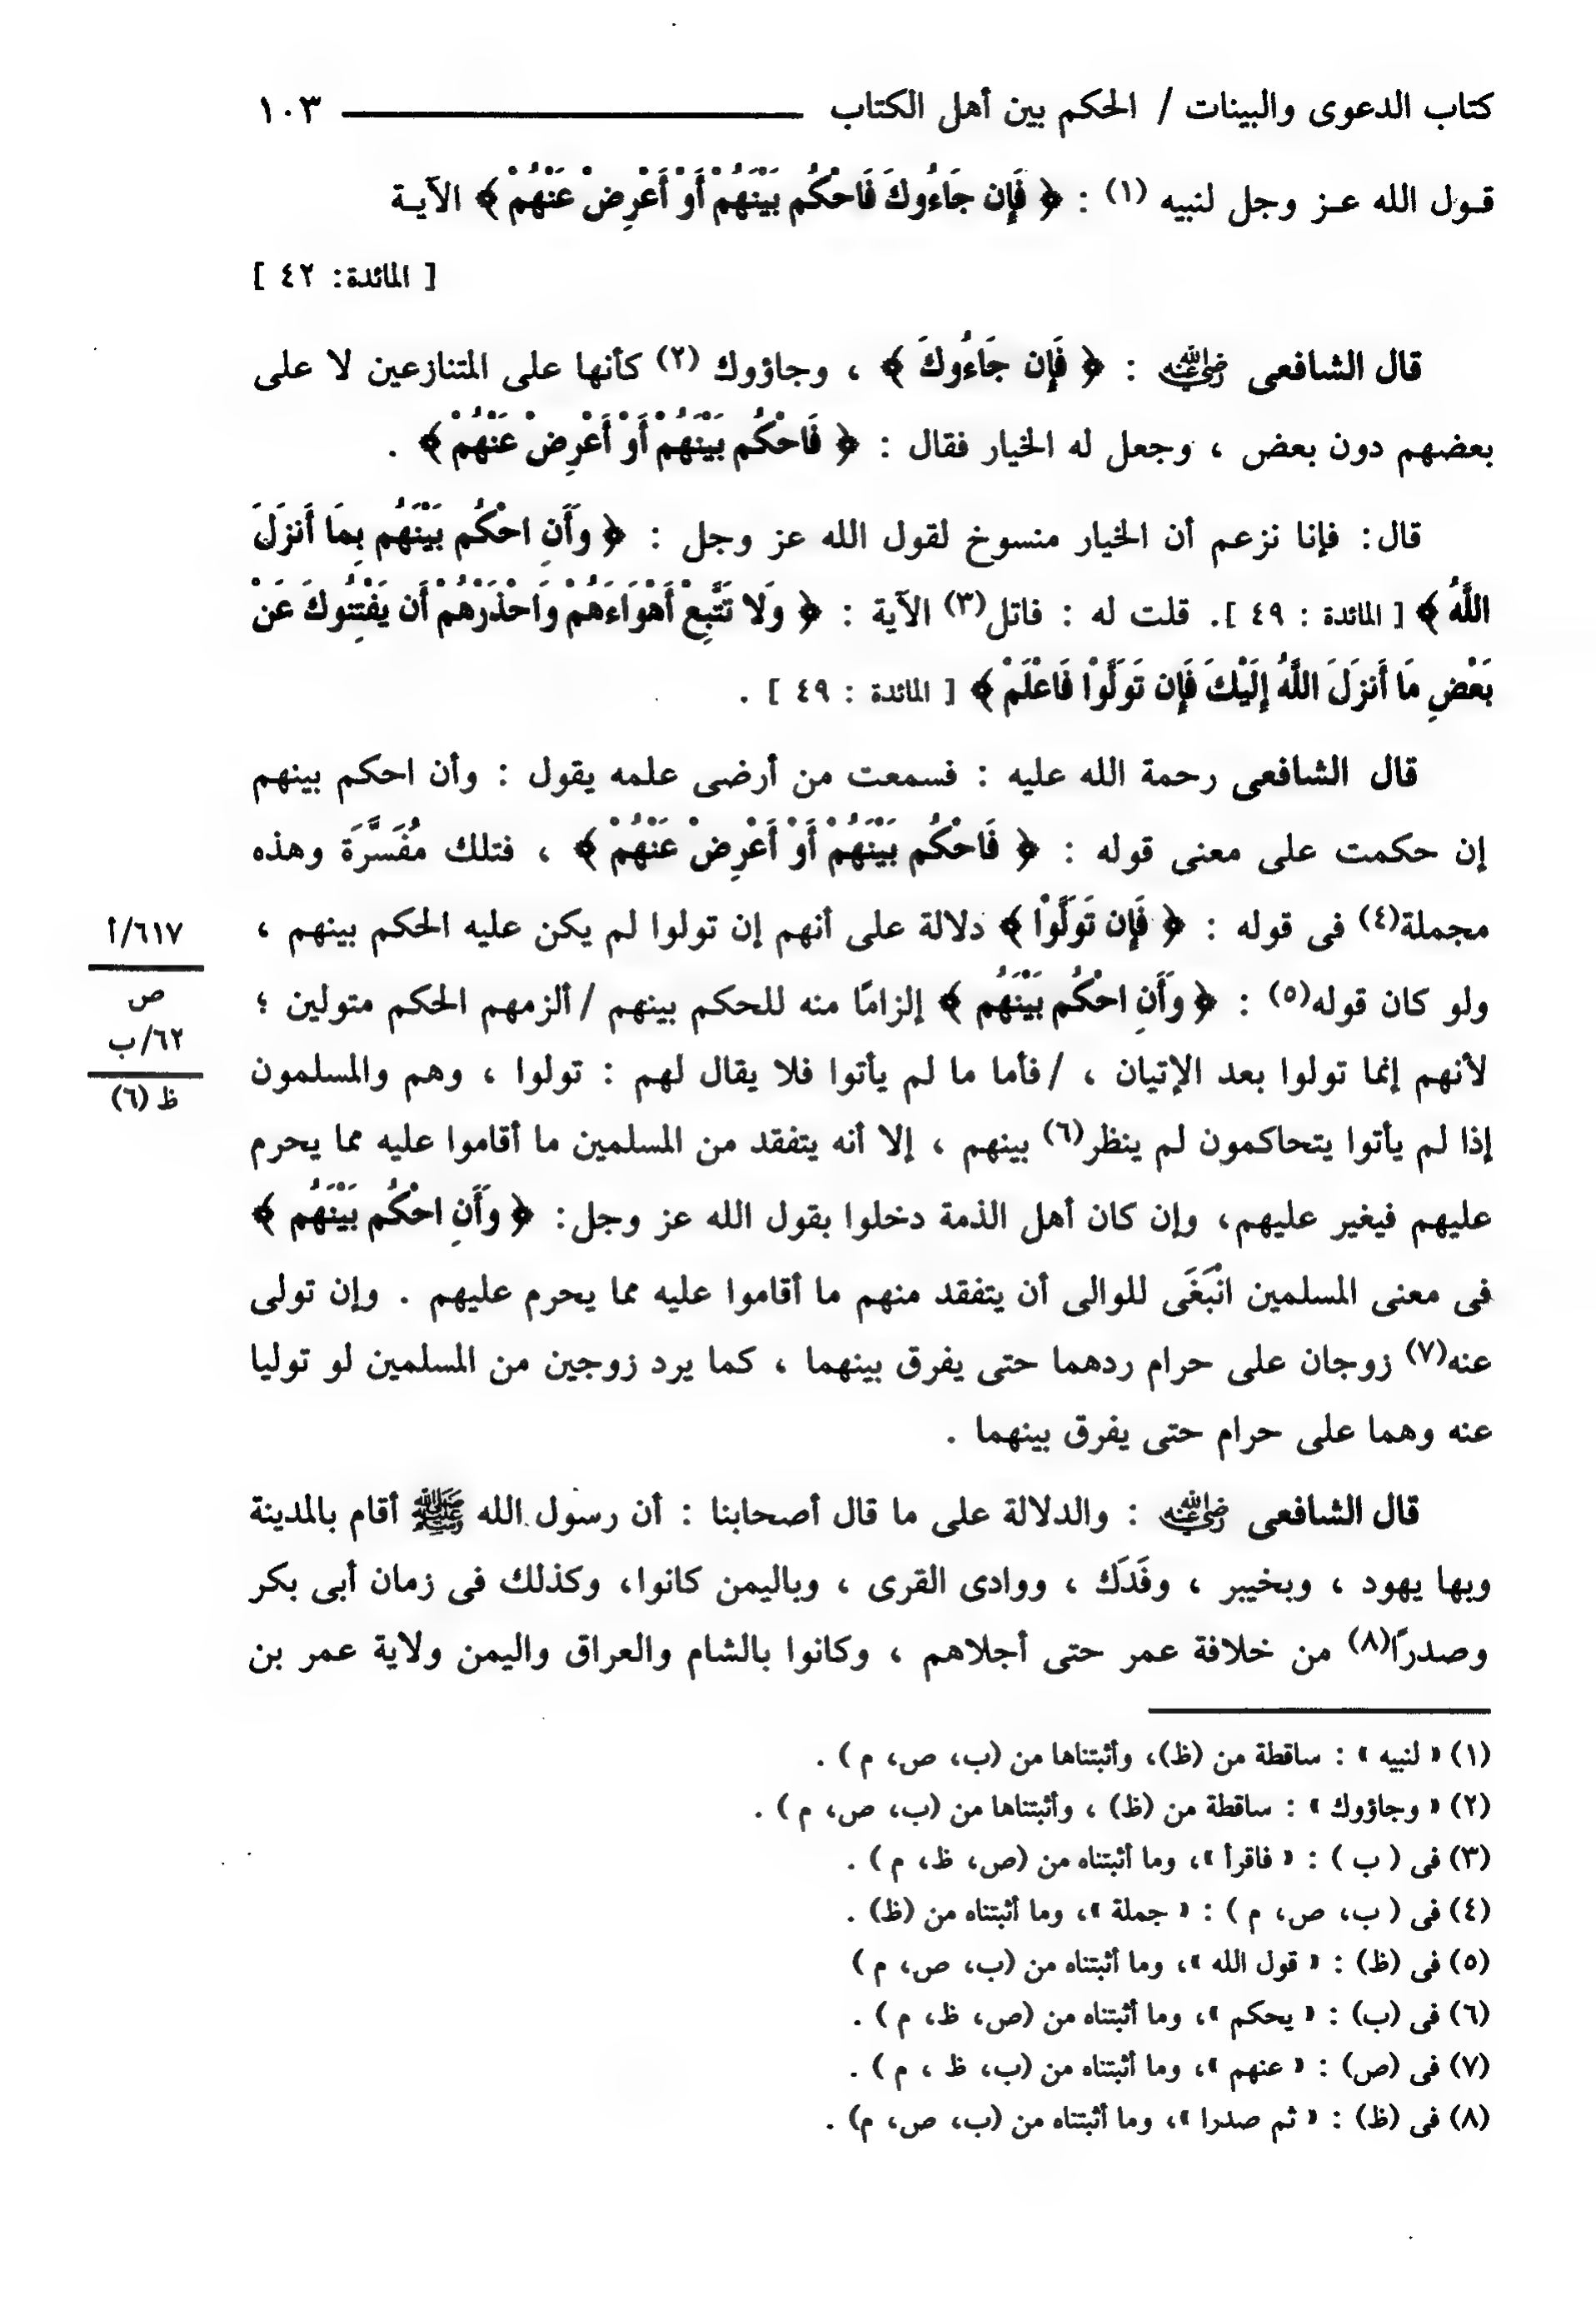 كتاب الدعوى والبينات / الحكم بين أهل الكتاب ١٠٣
قـول الله عـز وجل لنبيه (١) : ﴿ فَإِن جَاءُوكَ فَاحْكُم بَيْنَهُمْ أَوْ أَعْرِضْ عَنْهُمْ ﴾ الآيـة
[ المائدة: ٤٢ ]
قال الشافعى رضي الله عنه : ﴿ فَإِن جَاءُوكَ ﴾ ، وجاؤوك (٢) كأنها على المتنازعين لا على
بعضهم دون بعض ، وجعل له الخيار فقال : ﴿ فَاحْكُم بَيْنَهُمْ أَوْ أَعْرِضْ عَنْهُمْ ﴾ .
قال: فإنا نزعم أن الخيار منسوخ لقول الله عز وجل : ﴿ وَأَنِ احْكُم بَيْنَهُم بِمَا أَنزَلَ
اللَّهُ ﴾ [ المائدة : ٤٩ ]. قلت له : فاتل(٣) الآية : ﴿ وَلَا تَتَّبِعْ أَهْوَاءَهُمْ وَاحْذَرْهُمْ أَن يَفْتِنُوكَ عَنْ
بَعْضِ مَا أَنزَلَ اللَّهُ إِلَيْكَ فَإِن تَوَلَّوْا فَاعْلَمْ ﴾ [ المائدة : ٤٩ ] .
قال الشافعى رحمة الله عليه : فسمعت من أرضى علمه يقول : وأن احكم بينهم
إن حكمت على معنى قوله : ﴿ فَاحْكُم بَيْنَهُمْ أَوْ أَعْرِضْ عَنْهُمْ ﴾ ، فتلك مُفَسَّرَة وهذه
مجملة(٤) فى قوله : ﴿ فَإِن تَوَلَّوْا ﴾ دلالة على أنهم إن تولوا لم يكن عليه الحكم بينهم ،
ولو كان قوله(٥) : ﴿ وَأَنِ احْكُم بَيْنَهُم ﴾ إلزامًا منه للحكم بينهم / ألزمهم الحكم متولين ؛
لأنهم إنما تولوا بعد الإتيان ، / فأما ما لم يأتوا فلا يقال لهم : تولوا ، وهم والمسلمون
إذا لم يأتوا يتحاكمون لم ينظر(٦) بينهم ، إلا أنه يتفقد من المسلمين ما أقاموا عليه مما يحرم
عليهم فيغير عليهم، وإن كان أهل الذمة دخلوا بقول الله عز وجل: ﴿ وَأَنِ احْكُم بَيْنَهُم ﴾
فى معنى المسلمين انْبَغَى للوالى أن يتفقد منهم ما أقاموا عليه مما يحرم عليهم . وإن تولى
عنه(٧) زوجان على حرام ردهما حتى يفرق بينهما ، كما يرد زوجين من المسلمين لو توليا
عنه وهما على حرام حتى يفرق بينهما .
قال الشافعى رضي الله عنه : والدلالة على ما قال أصحابنا : أن رسول الله ﷺ أقام بالمدينة
وبها يهود ، وبخيبر ، وفَدَك ، ووادى القرى ، وباليمن كانوا، وكذلك فى زمان أبى بكر
وصدرًا(٨) من خلافة عمر حتى أجلاهم ، وكانوا بالشام والعراق واليمن ولاية عمر بن
٦١٧/أ
ص
٦٢/ب
ظ (٦)
(١) « لنبيه » : ساقطة من (ظ)، وأثبتناها من (ب، ص، م ) .
(٢) « وجاؤوك » : ساقطة من (ظ) ، وأثبتناها من (ب، ص، م ) .
(٣) فى ( ب ) : « فاقرأ »، وما أثبتناه من (ص، ظ، م ) .
(٤) فى ( ب، ص، م ) : « جملة »، وما أثبتناه من (ظ) .
(٥) فى (ظ) : « قول الله »، وما أثبتناه من (ب، ص، م )
(٦) فى (ب) : « يحكم »، وما أثبتناه من (ص، ظ، م ) .
(٧) فى (ص) : « عنهم »، وما أثبتناه من (ب، ظ ، م ) .
(٨) فى (ظ) : « ثم صدرا »، وما أثبتناه من (ب، ص، م) .